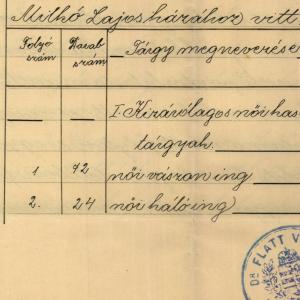 Milkó Lajos házához vitt
Folyó szám Darab szám Tárgy megneverése
I. Kizárólagos női has
tárgyak.
1. 42 női vászon ing
2. 24 női hálóing
DR FLATT V